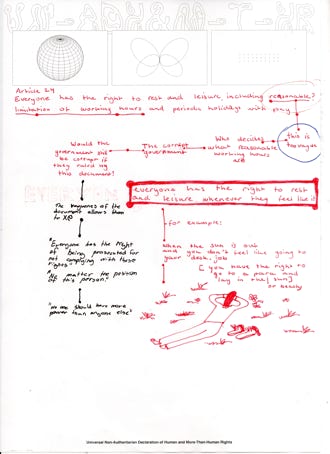 Article 24
Everyone has the right to rest and leisure, including reasonable
limitation of working hours and periodic holidays with pay.
this is
too vague
Who decides
what reasonable
working hours
are
The corrupt
government
Would the
government still
be corrupt if
they ruled by
this document?
The vagueness of the
document allows them
to
everyone has the right to rest
and leisure whenever they feel like it
for example:
When the sun is out
and you don't feel like going to
your desk job
[you have the right to
go to a park and
lay in the sun]
or beach
"Everyone has the right
of being prosecuted for
not complying with these
rights"
matter the position
of this person?
"no one should have more
power than anyone else"
Universal Non-Authoritarian Declaration of Human and More-Than-Human Rights